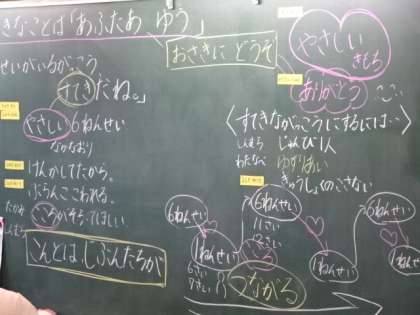 きなことは「あふたあ ゆう」
おさきに どうぞ
せいがいるがっこう
すてきだね。」
やさしい 6ねんせい
なかなおり
けんかしてたから。
ぶらんこ こわれる。
こころがそだってほしい
こんどは、じぶんたちが
やさしい
きもち
ありがとう
〈すてきながっこうにするには…〉
しまむら じゅんび1人
わたなべ ゆずりあい
きゅうしょくのこさない
6ねんせい
1ねんせい
6さい
7さい
6ねんせい
11さい
12さい
つながる
1ねんせい
6ねんせい
1ねんせい